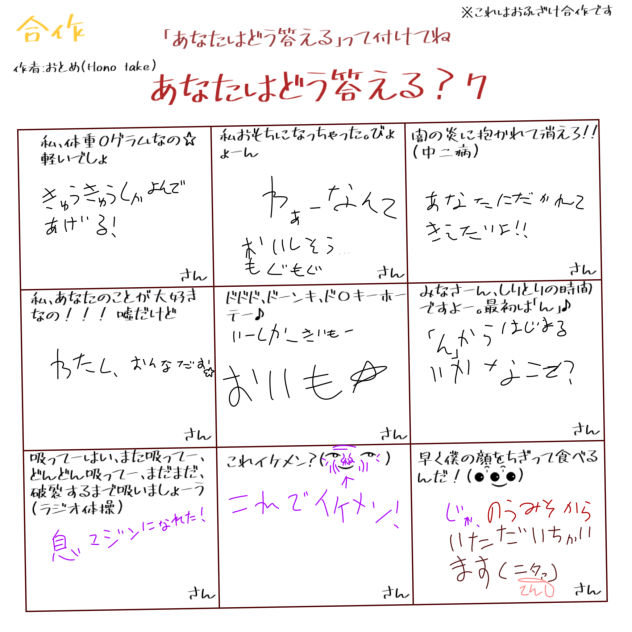 ※これはおふざけ合作です
合作
「あなたはどう答える」って付けてね
作者:おとめ(Hono take)
あなたはどう答える?7
私、体重0グラムなの☆
軽いでしょ
きゅうきゅうしゃよんで
あげる!
さん
私おもちになっちゃった。びよ
よーん
わぁーなんて
おいしそう…
もぐもぐ
さん
闇の炎に抱かれて消えろ!!
(中二病)
あなたにだかれて
きえたいよ!!
さん
私、あなたのことが大好き
なの!!!嘘だけど
わたし、おんなだお☆
さん
ドドド、ドーンキ、ド〇キーホ
ーテ♪
おいも☆
さん
みなさーん、しりとりの時間
ですよー。最初は「ん」♪
「ん」からはじまる
さん
吸ってーはい、また吸ってー、
どんどん吸ってー、まだまだ、
破裂するまで吸いましょーう
(ラジオ体操)
息、マジンになれた!
さん
これイケメン?( )
↑
これでイケメン!
さん
早く僕の顔をちぎって食べる
んだ!( )
じゃ、のうみそから
いただいちゃい
ます(ニタァ)
さん